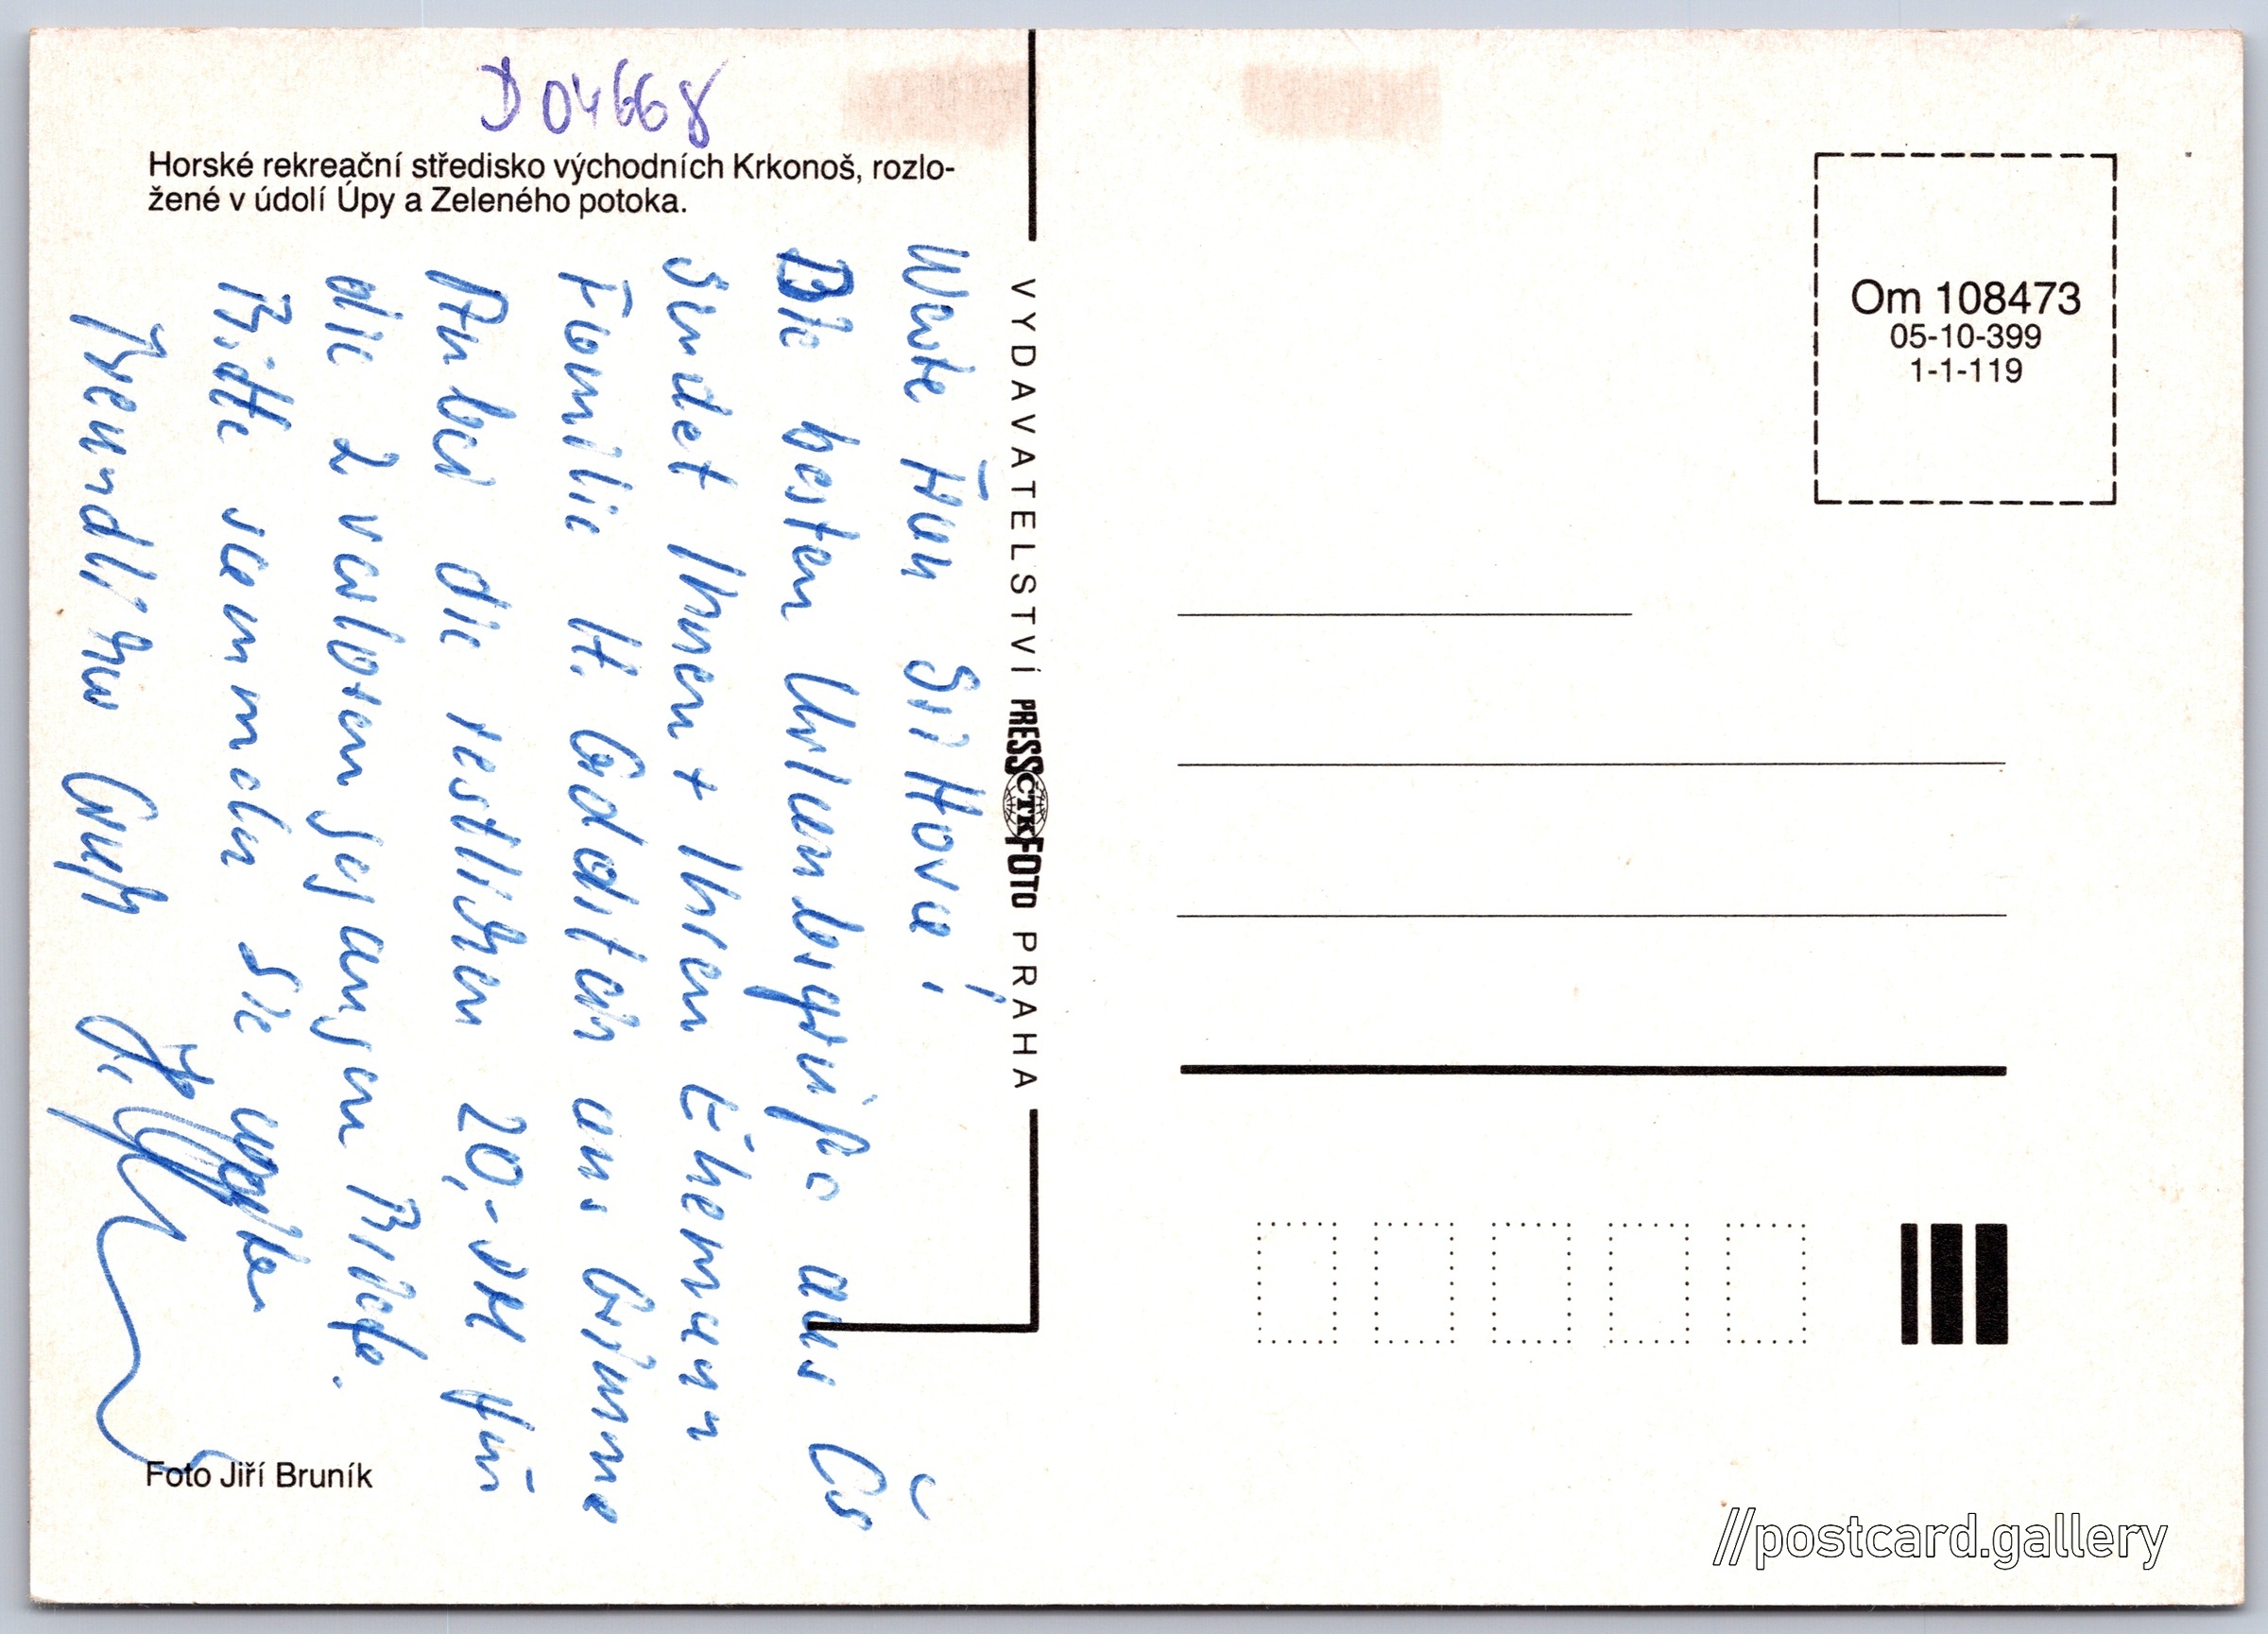 D 04668
Horské rekreační středisko východních Krkonoš, rozlo-
žené v údolí Úpy a Zeleného potoka.
Werte Frau
Die besten Urlaubsgrüße aus ČS
sendet Ihnen + Ihren Ehemann
Familie H. aus Grimma
Anbei die restlichen 20,- DM für
die 2 verloren gegangen Briefe.
Bitte sammeln Sie weiter
Freundlichen Gruß
Foto Jiří Bruník
VYDAVATELSTVÍ PRESSFOTO PRAHA
ČTK
Om 108473
05-10-399
1-1-119
//postcard.gallery